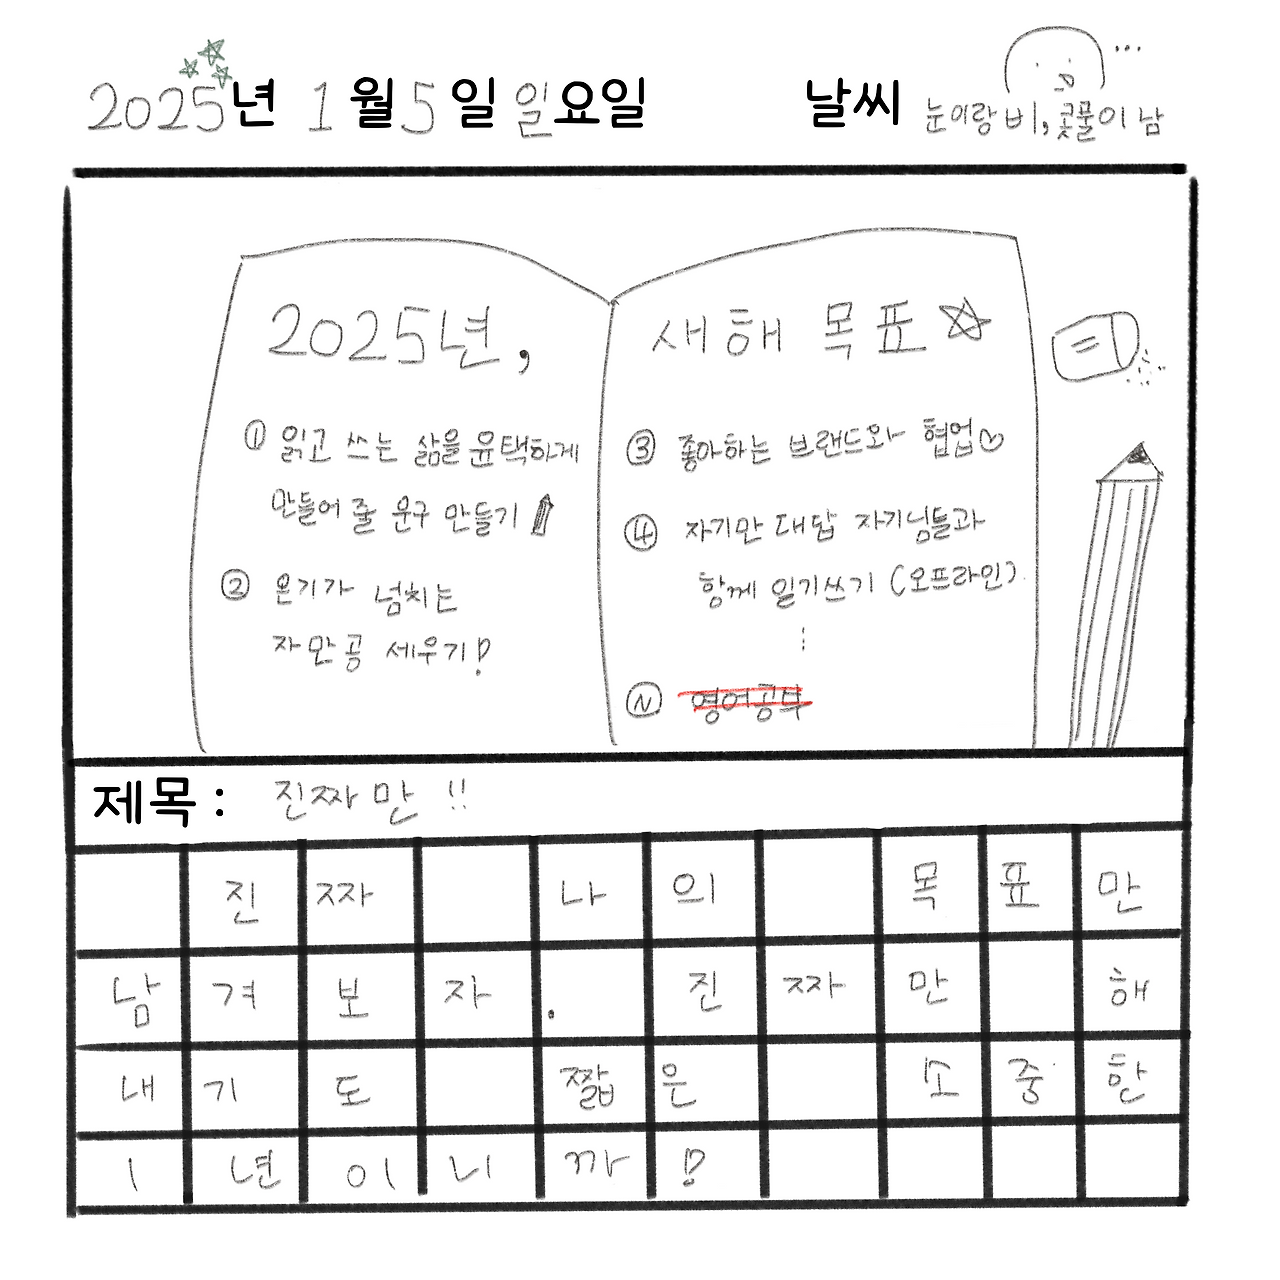 2025년 1월 5일 일요일 날씨 눈이랑 비, 콧물이 남
2025년,
① 읽고 쓰는 삶을 윤택하게
만들어 줄 문구 만들기
② 온기가 넘치는
자만공 세우기!
새해 목표
③ 좋아하는 브랜드와 협업
④ 자기만 대답 자기님들과
함께 일기쓰기 (오프라인)
Ⓝ 영어공부
제목 : 진짜만 !!
진짜 나의 목표만
남겨보자. 진짜만 해
내기도 짧은 소중한
1년이니까!